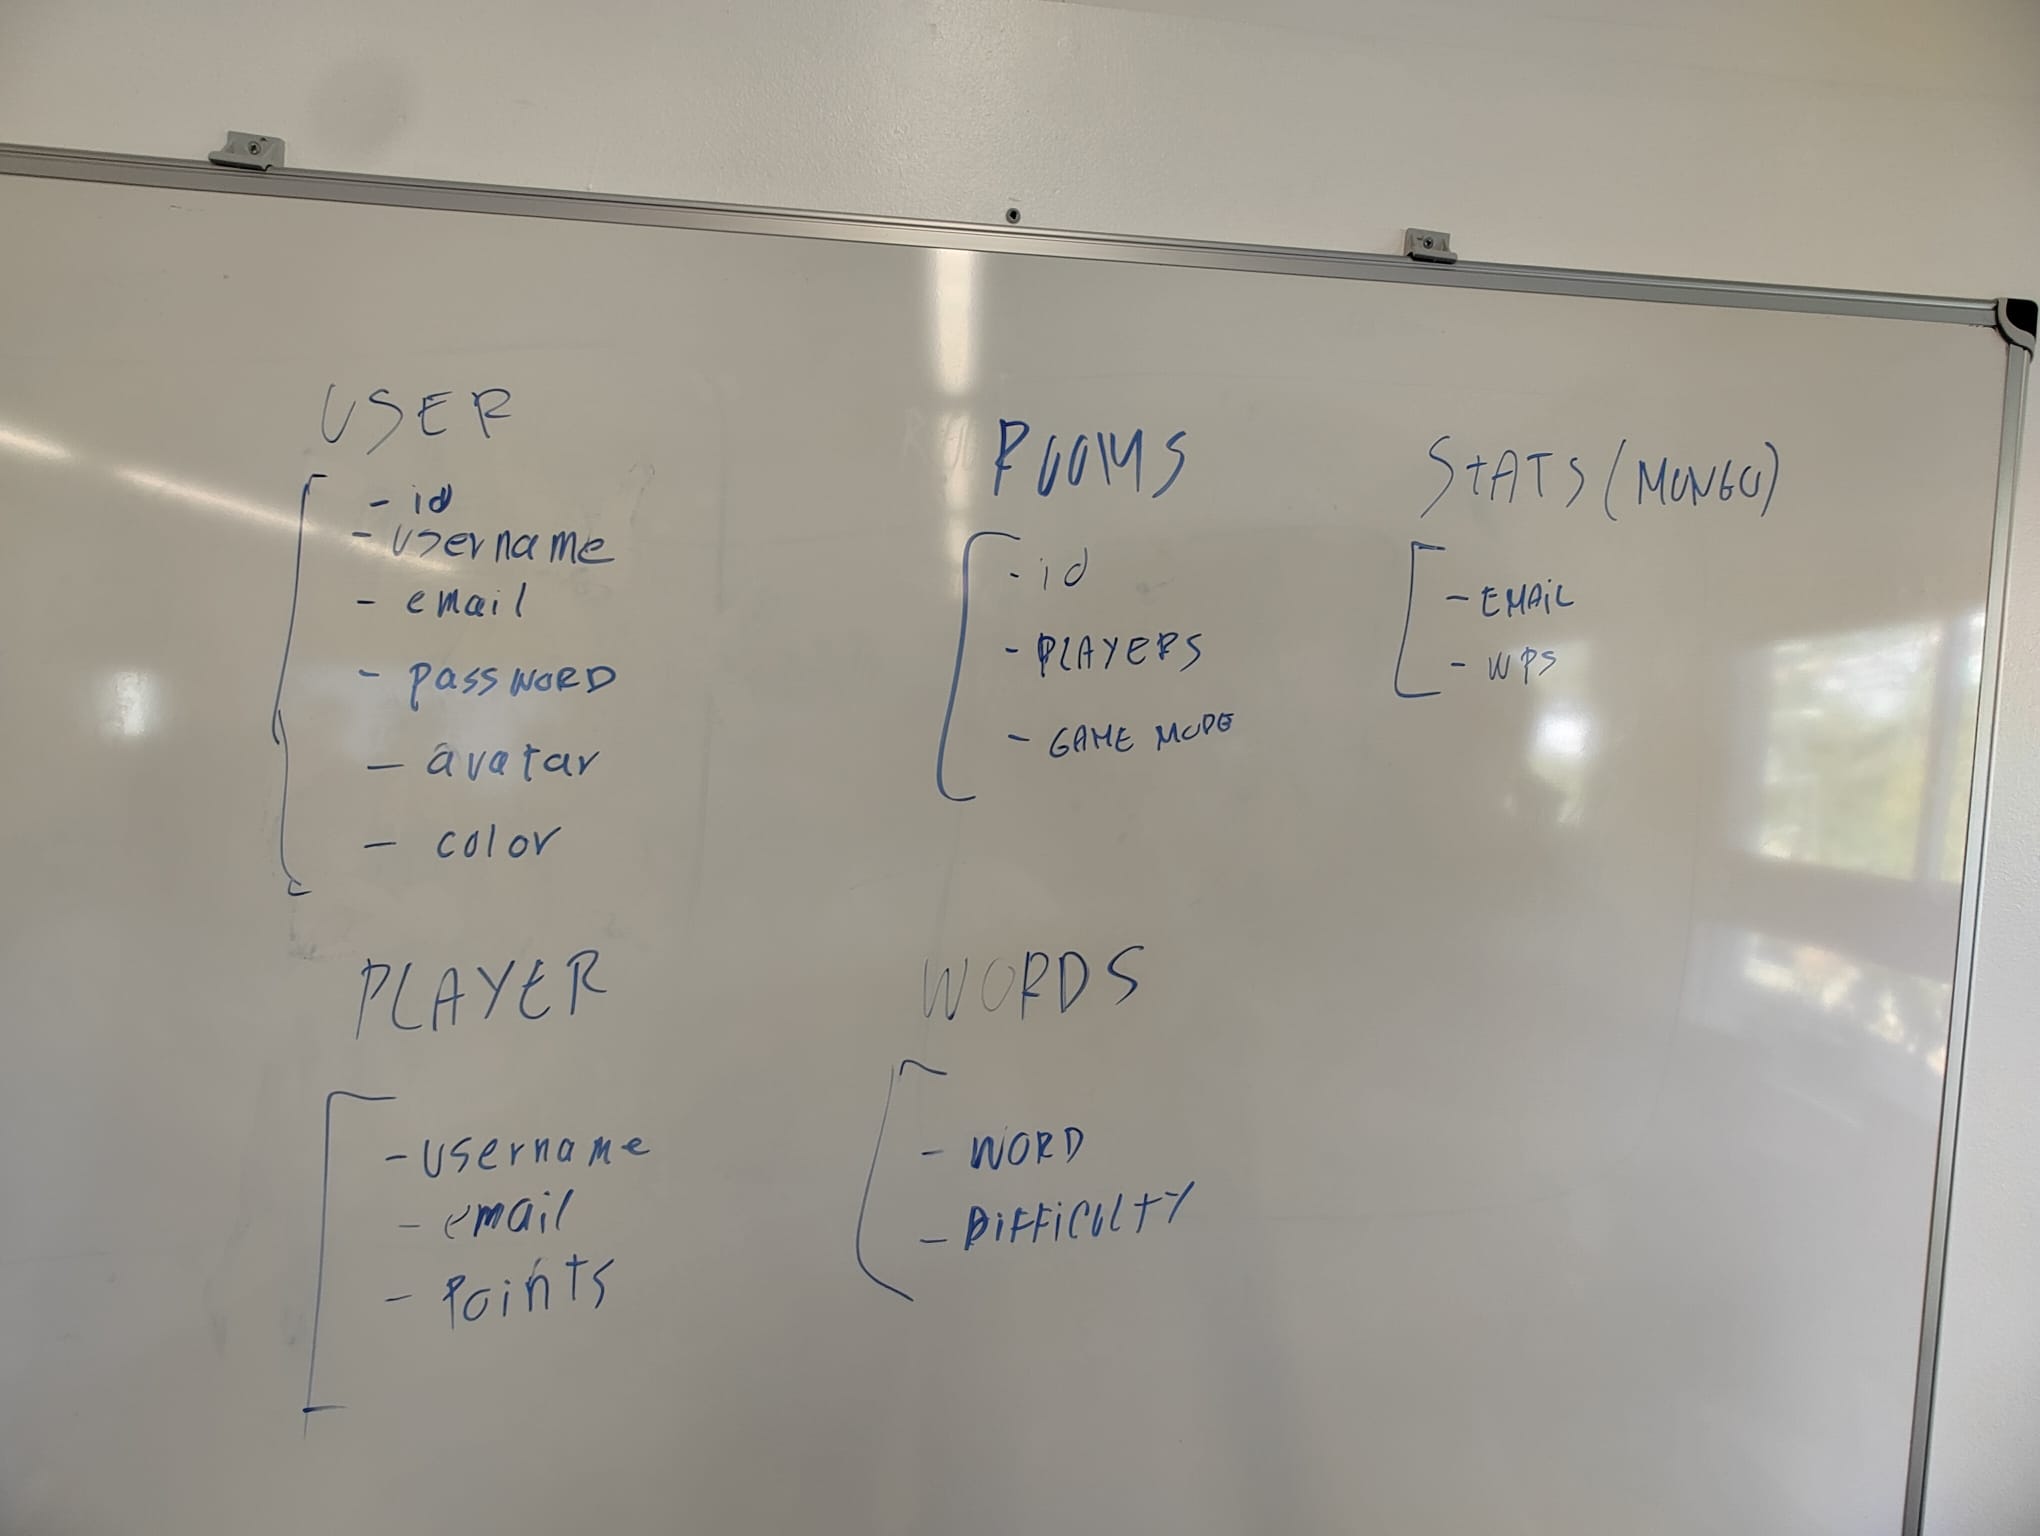 USER
- id
- username
- email
- passWORD
- avatar
- color
ROOMS
- id
- PLAYERS
- GAME MODE
StATS (MONGO)
- EMAiL
- WPS
PLAYER
- username
- email
- Points
WORDS
- WORD
- DiFFiCULtY